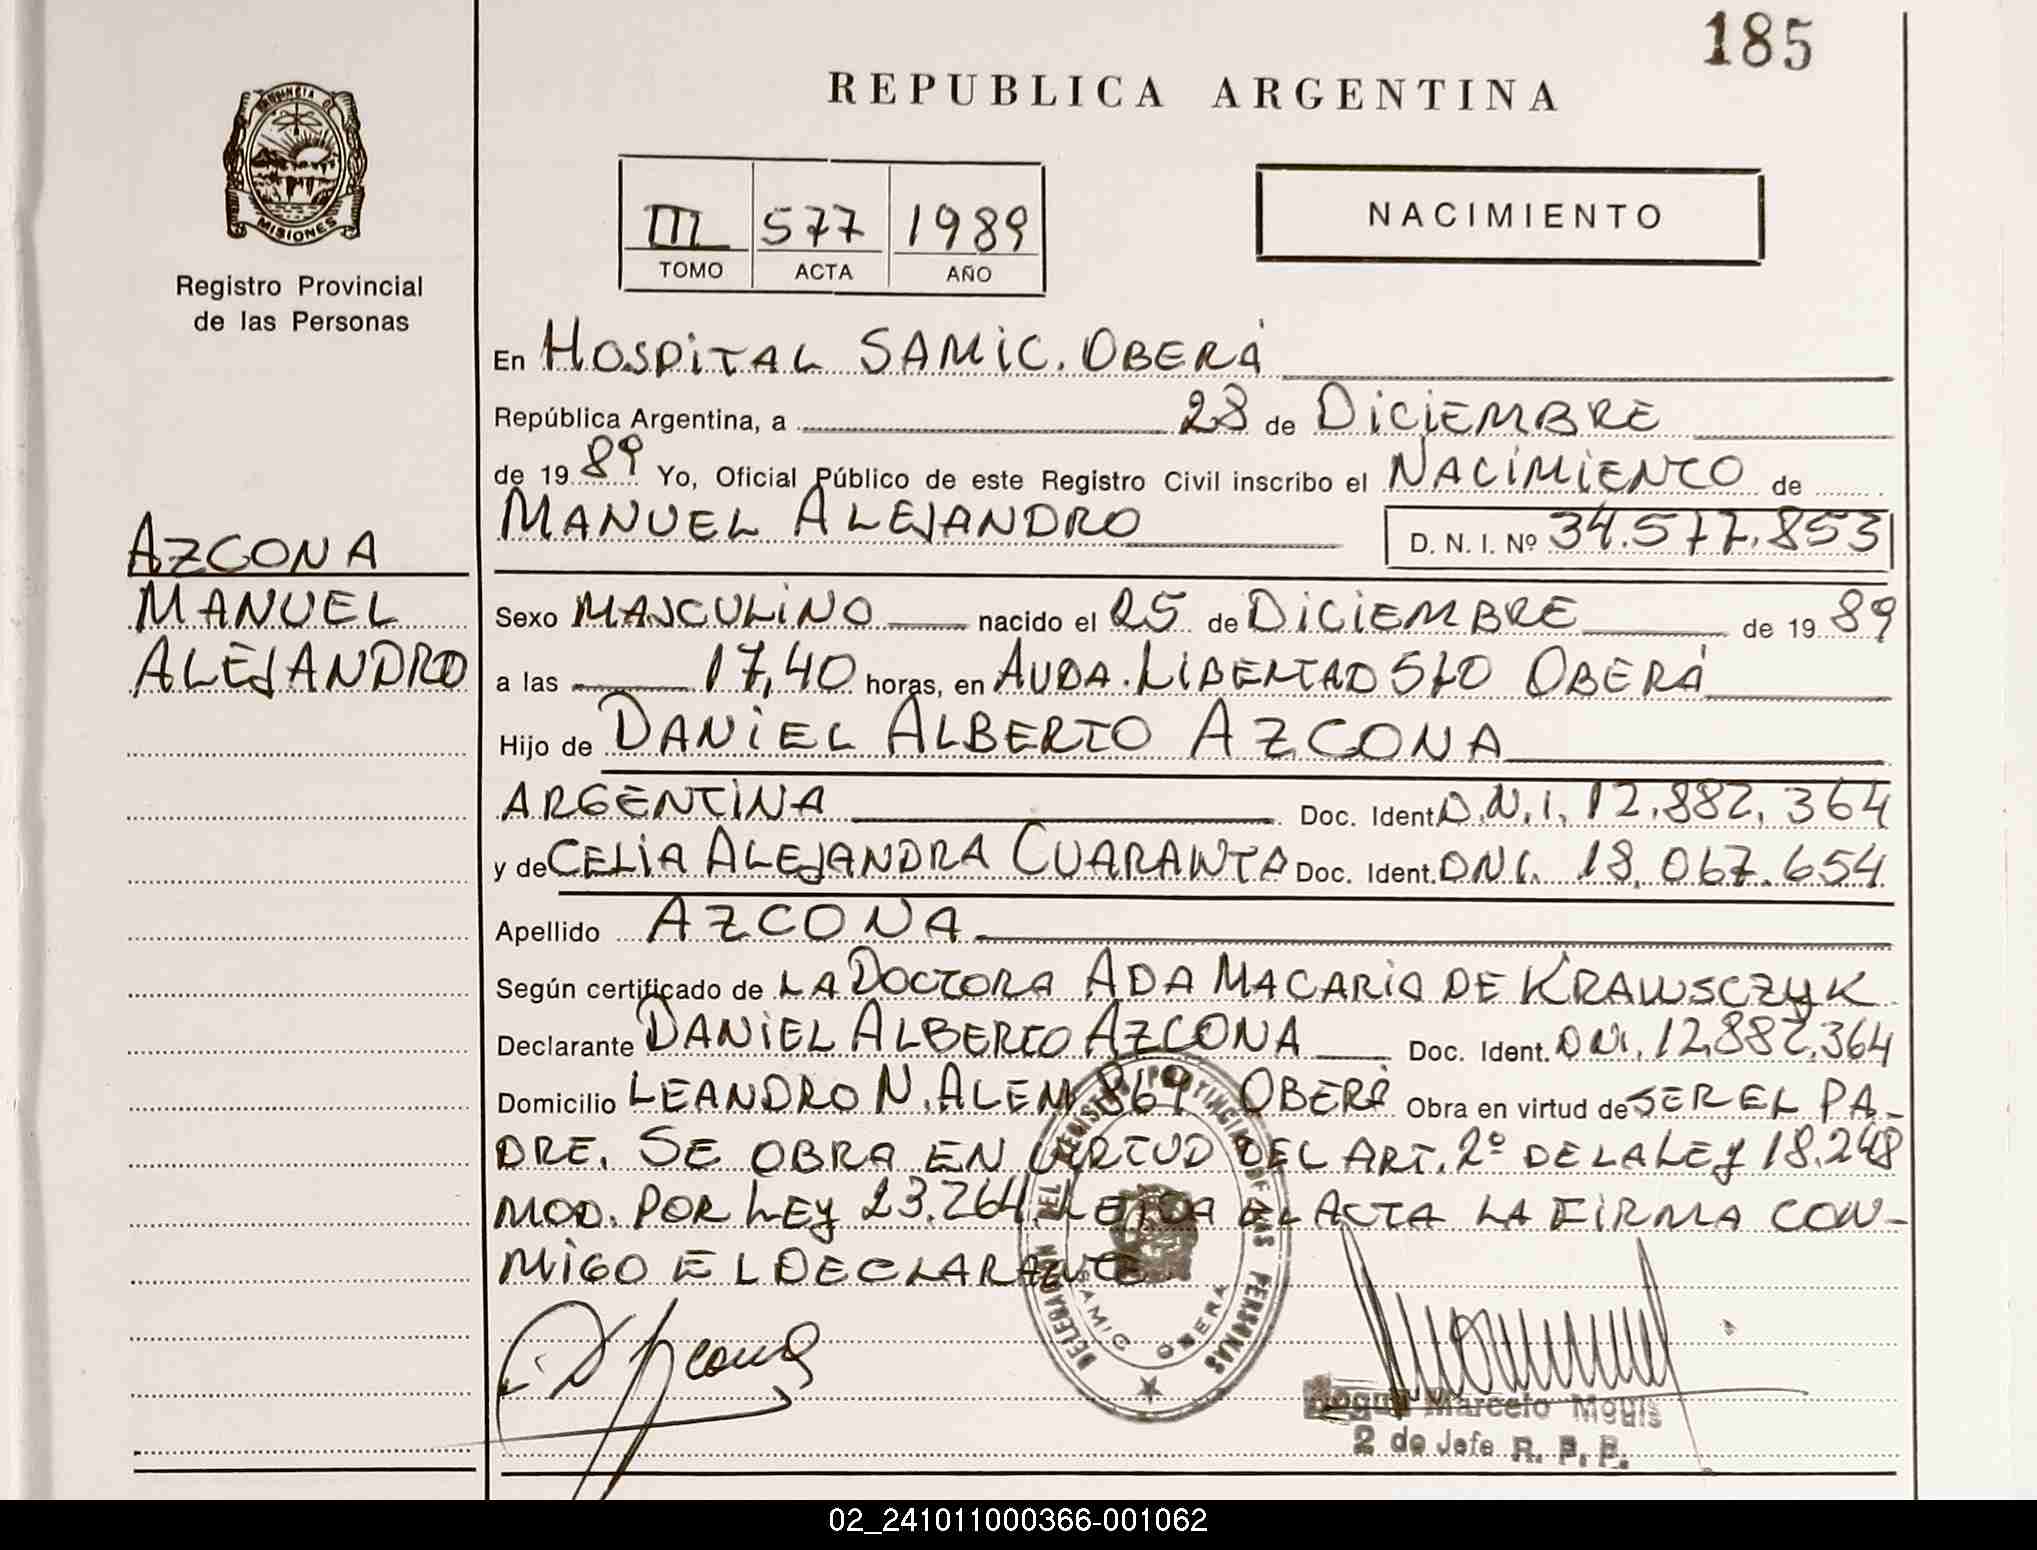 185
REPUBLICA ARGENTINA
PROVINCIA DE
MISIONES
Registro Provincial
de las Personas
III 577 1989
TOMO ACTA AÑO
NACIMIENTO
En HOSPITAL SAMIC. OBERÁ
República Argentina, a 28 de DICIEMBRE
de 19 89 Yo, Oficial Público de este Registro Civil inscribo el NACIMIENTO de
MANUEL ALEJANDRO D. N. I. Nº 34.577.853
AZCONA
MANUEL
ALEJANDRO
Sexo MASCULINO nacido el 25 de DICIEMBRE de 19 89
a las 17,40 horas, en AVDA. LIBERTAD 510 OBERÁ
Hijo de DANIEL ALBERTO AZCONA
ARGENTINA Doc. Ident. D.N.I. 12.882.364
y de CELIA ALEJANDRA CUARANTA Doc. Ident. DNI. 18.067.654
Apellido AZCONA
Según certificado de LA DOCTORA ADA MACARIO DE KRAWSCZYK
Declarante DANIEL ALBERTO AZCONA Doc. Ident. DNI. 12.882.364
Domicilio LEANDRO N. ALEM 869 OBERÁ Obra en virtud de SER EL PA-
DRE. SE OBRA EN VIRTUD DEL ART. 2º DE LA LEY 18.248
MOD. POR LEY 23.264. LEIDA EL ACTA LA FIRMA CON-
MIGO EL DECLARANTE
DELEGACION DEL REGISTRO PROVINCIAL DE LAS PERSONAS
SAMIC OBERA
Marcelo
2 de Jefe R. P. P.
02_241011000366-001062